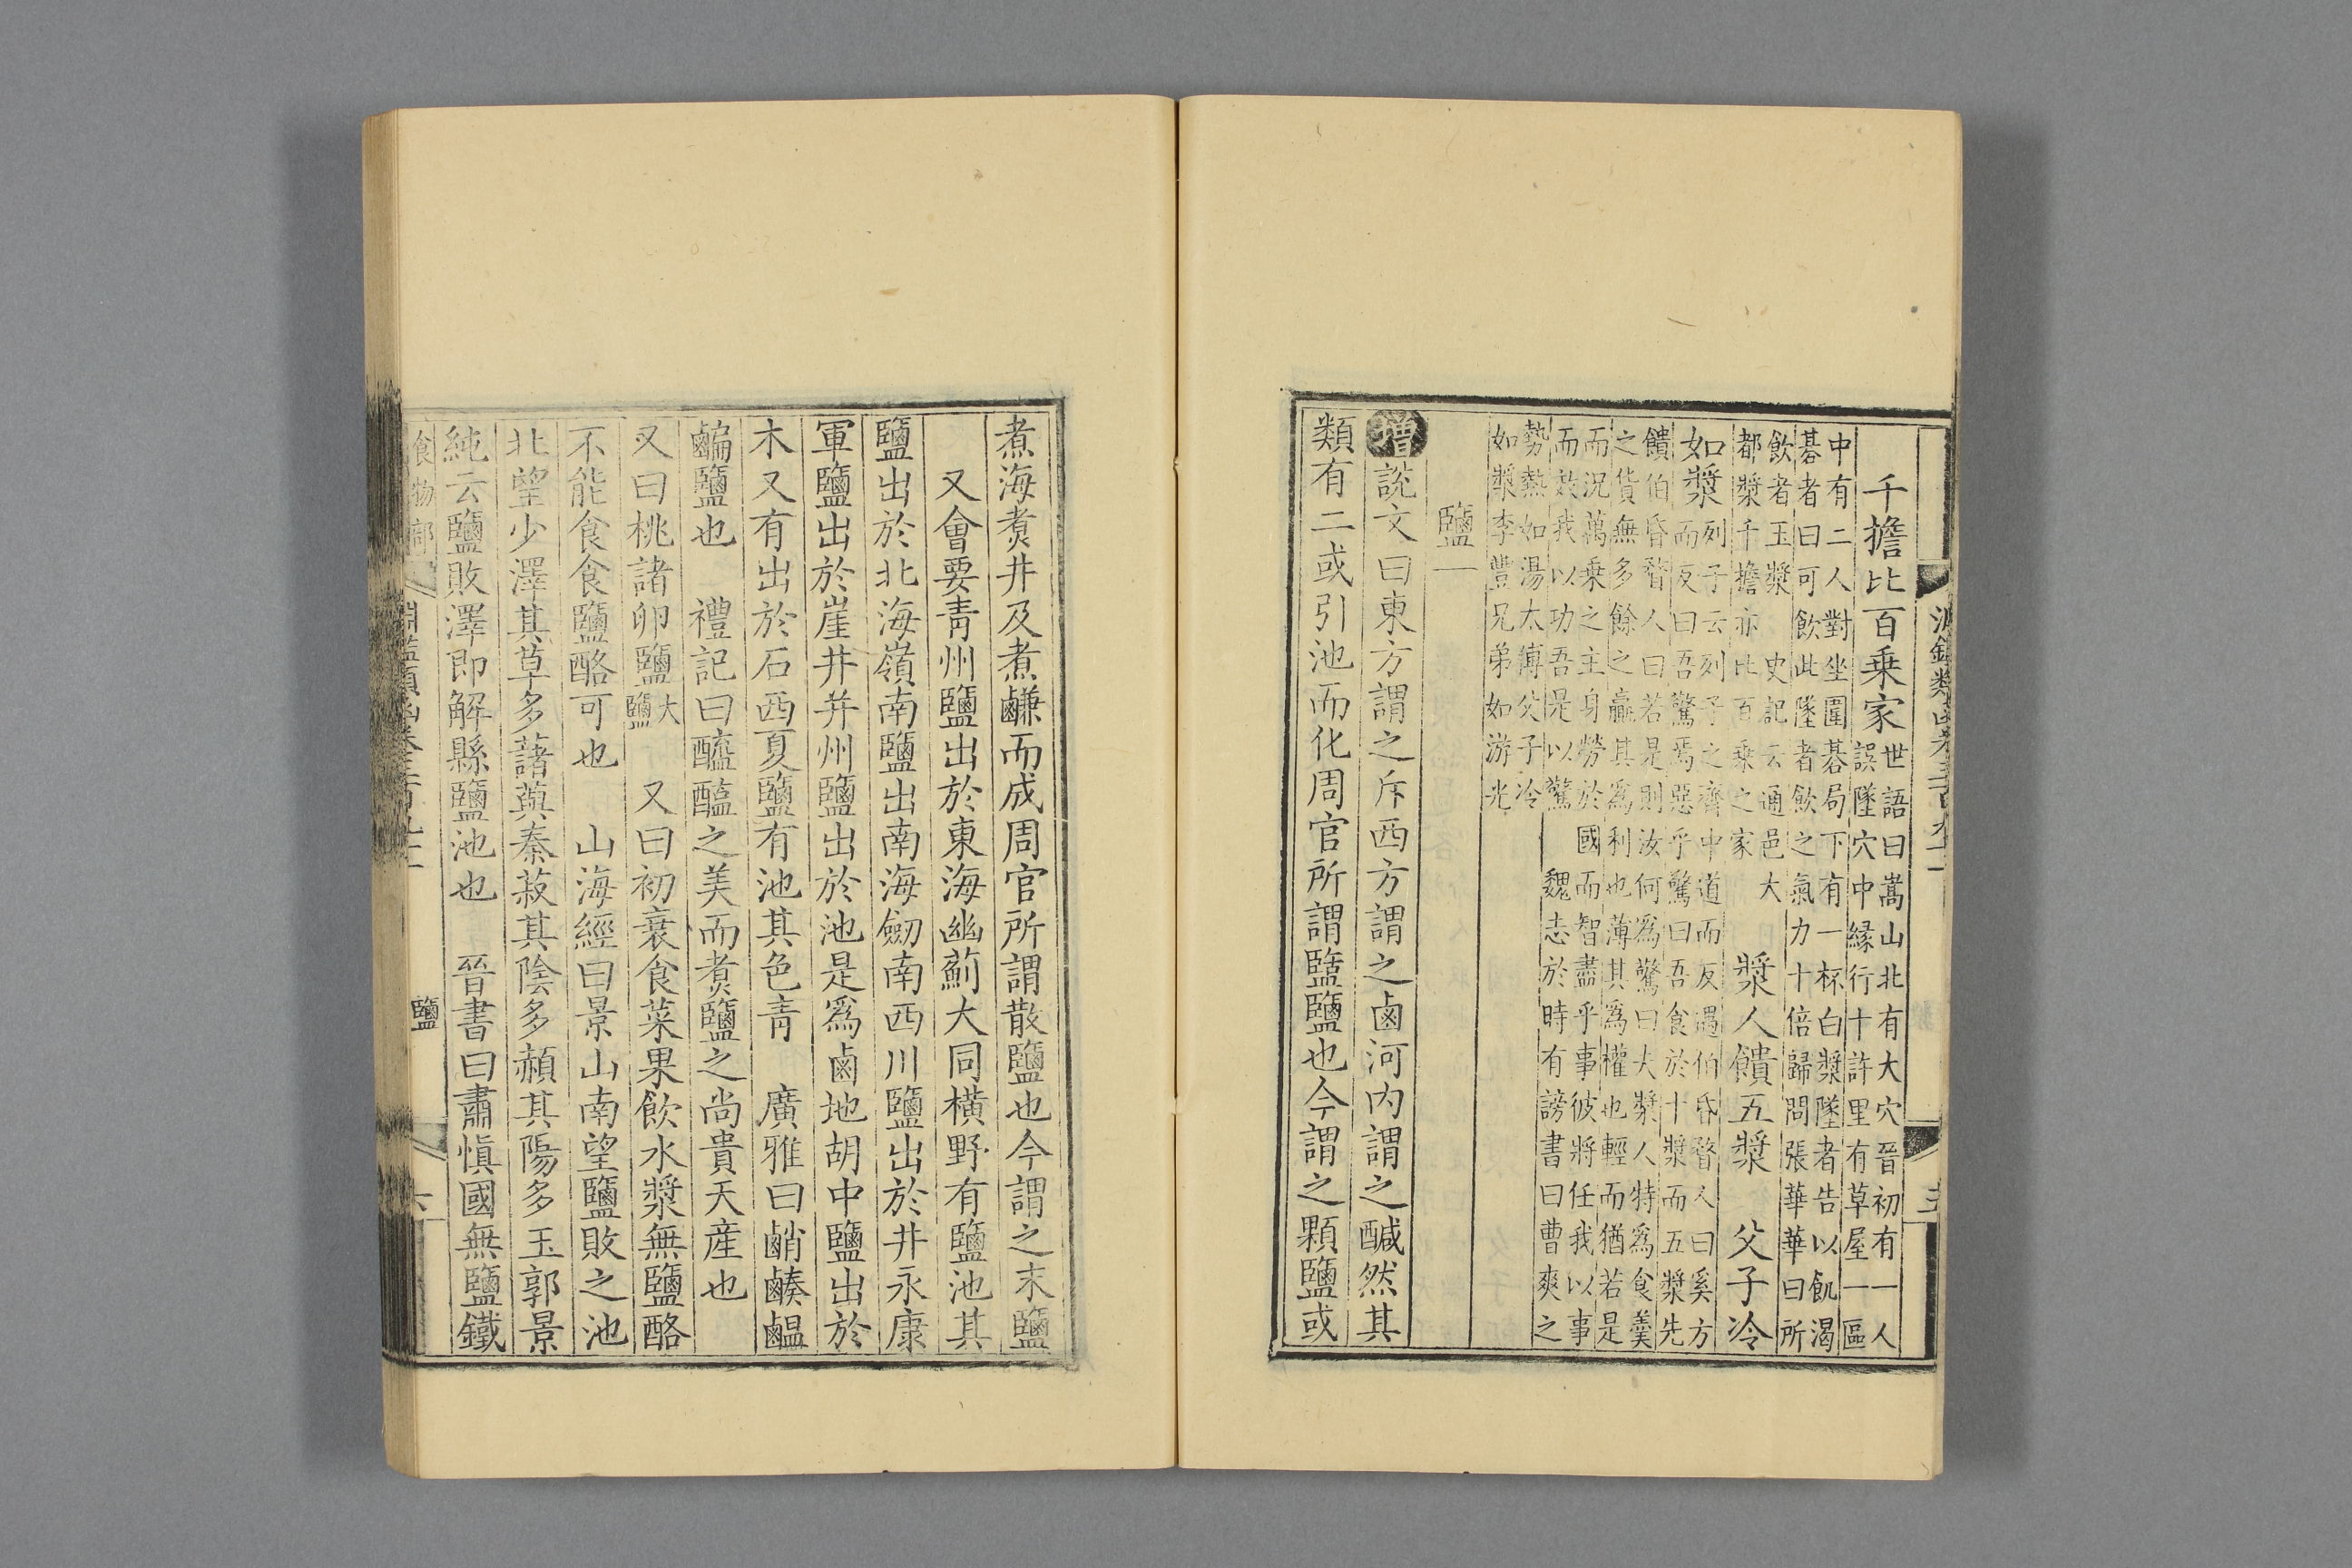 淵鑑類函卷三百九十一
三
千擔比百乘家
世語曰嵩山北有大穴晉初有一人
誤墜穴中緣行十許里有草屋一區
中有二人對坐圍碁局下有一杯白漿墜者告以飢渴
碁者曰可飲此墜者飲之氣力十倍歸問張華華曰所
飲者玉漿　史記云通邑大
都漿千擔亦比百乘之家
漿人饋五漿　父子冷
如漿
列子云列子之齊中道而反遇伯昏瞀人曰奚方
而反曰吾驚焉惡乎驚曰吾食於十漿而五漿先
饋伯昏瞀人曰若是則汝何爲驚曰大漿人特爲食羹
之貨無多餘之贏其爲利也薄其爲權也輕而猶若是
而況萬乘之主身勞於國而智盡乎事彼將任我以事
而效我以功吾是以驚　魏志於時有謗書曰曹爽之
勢熱如湯太傅父子冷
如漿李豐兄弟如游光
鹽一
增說文曰東方謂之斥西方謂之鹵河內謂之醎然其
類有二或引池而化周官所謂盬鹽也今謂之顆鹽或
煮海煑井及煮鹻而成周官所謂散鹽也今謂之末鹽
又會要青州鹽出於東海幽薊大同橫野有鹽池其
鹽出於北海嶺南鹽出南海劒南西川鹽出於井永康
軍鹽出於崖井并州鹽出於池是爲鹵地胡中鹽出於
木又有出於石西夏鹽有池其色青　廣雅曰䴛䴝䴖
䴜鹽也　禮記曰醯醢之美而煑鹽之尚貴天産也
又曰桃諸卵鹽
大
鹽
又曰初衰食菜果飲水漿無鹽酪
不能食食鹽酪可也　山海經曰景山南望鹽敗之池
北望少澤其草多藷藇秦菽其陰多赬其陽多玉郭景
純云鹽敗澤即解縣鹽池也　晉書曰肅愼國無鹽鐵
食物部
淵鑑類函卷三百九十一
鹽
六